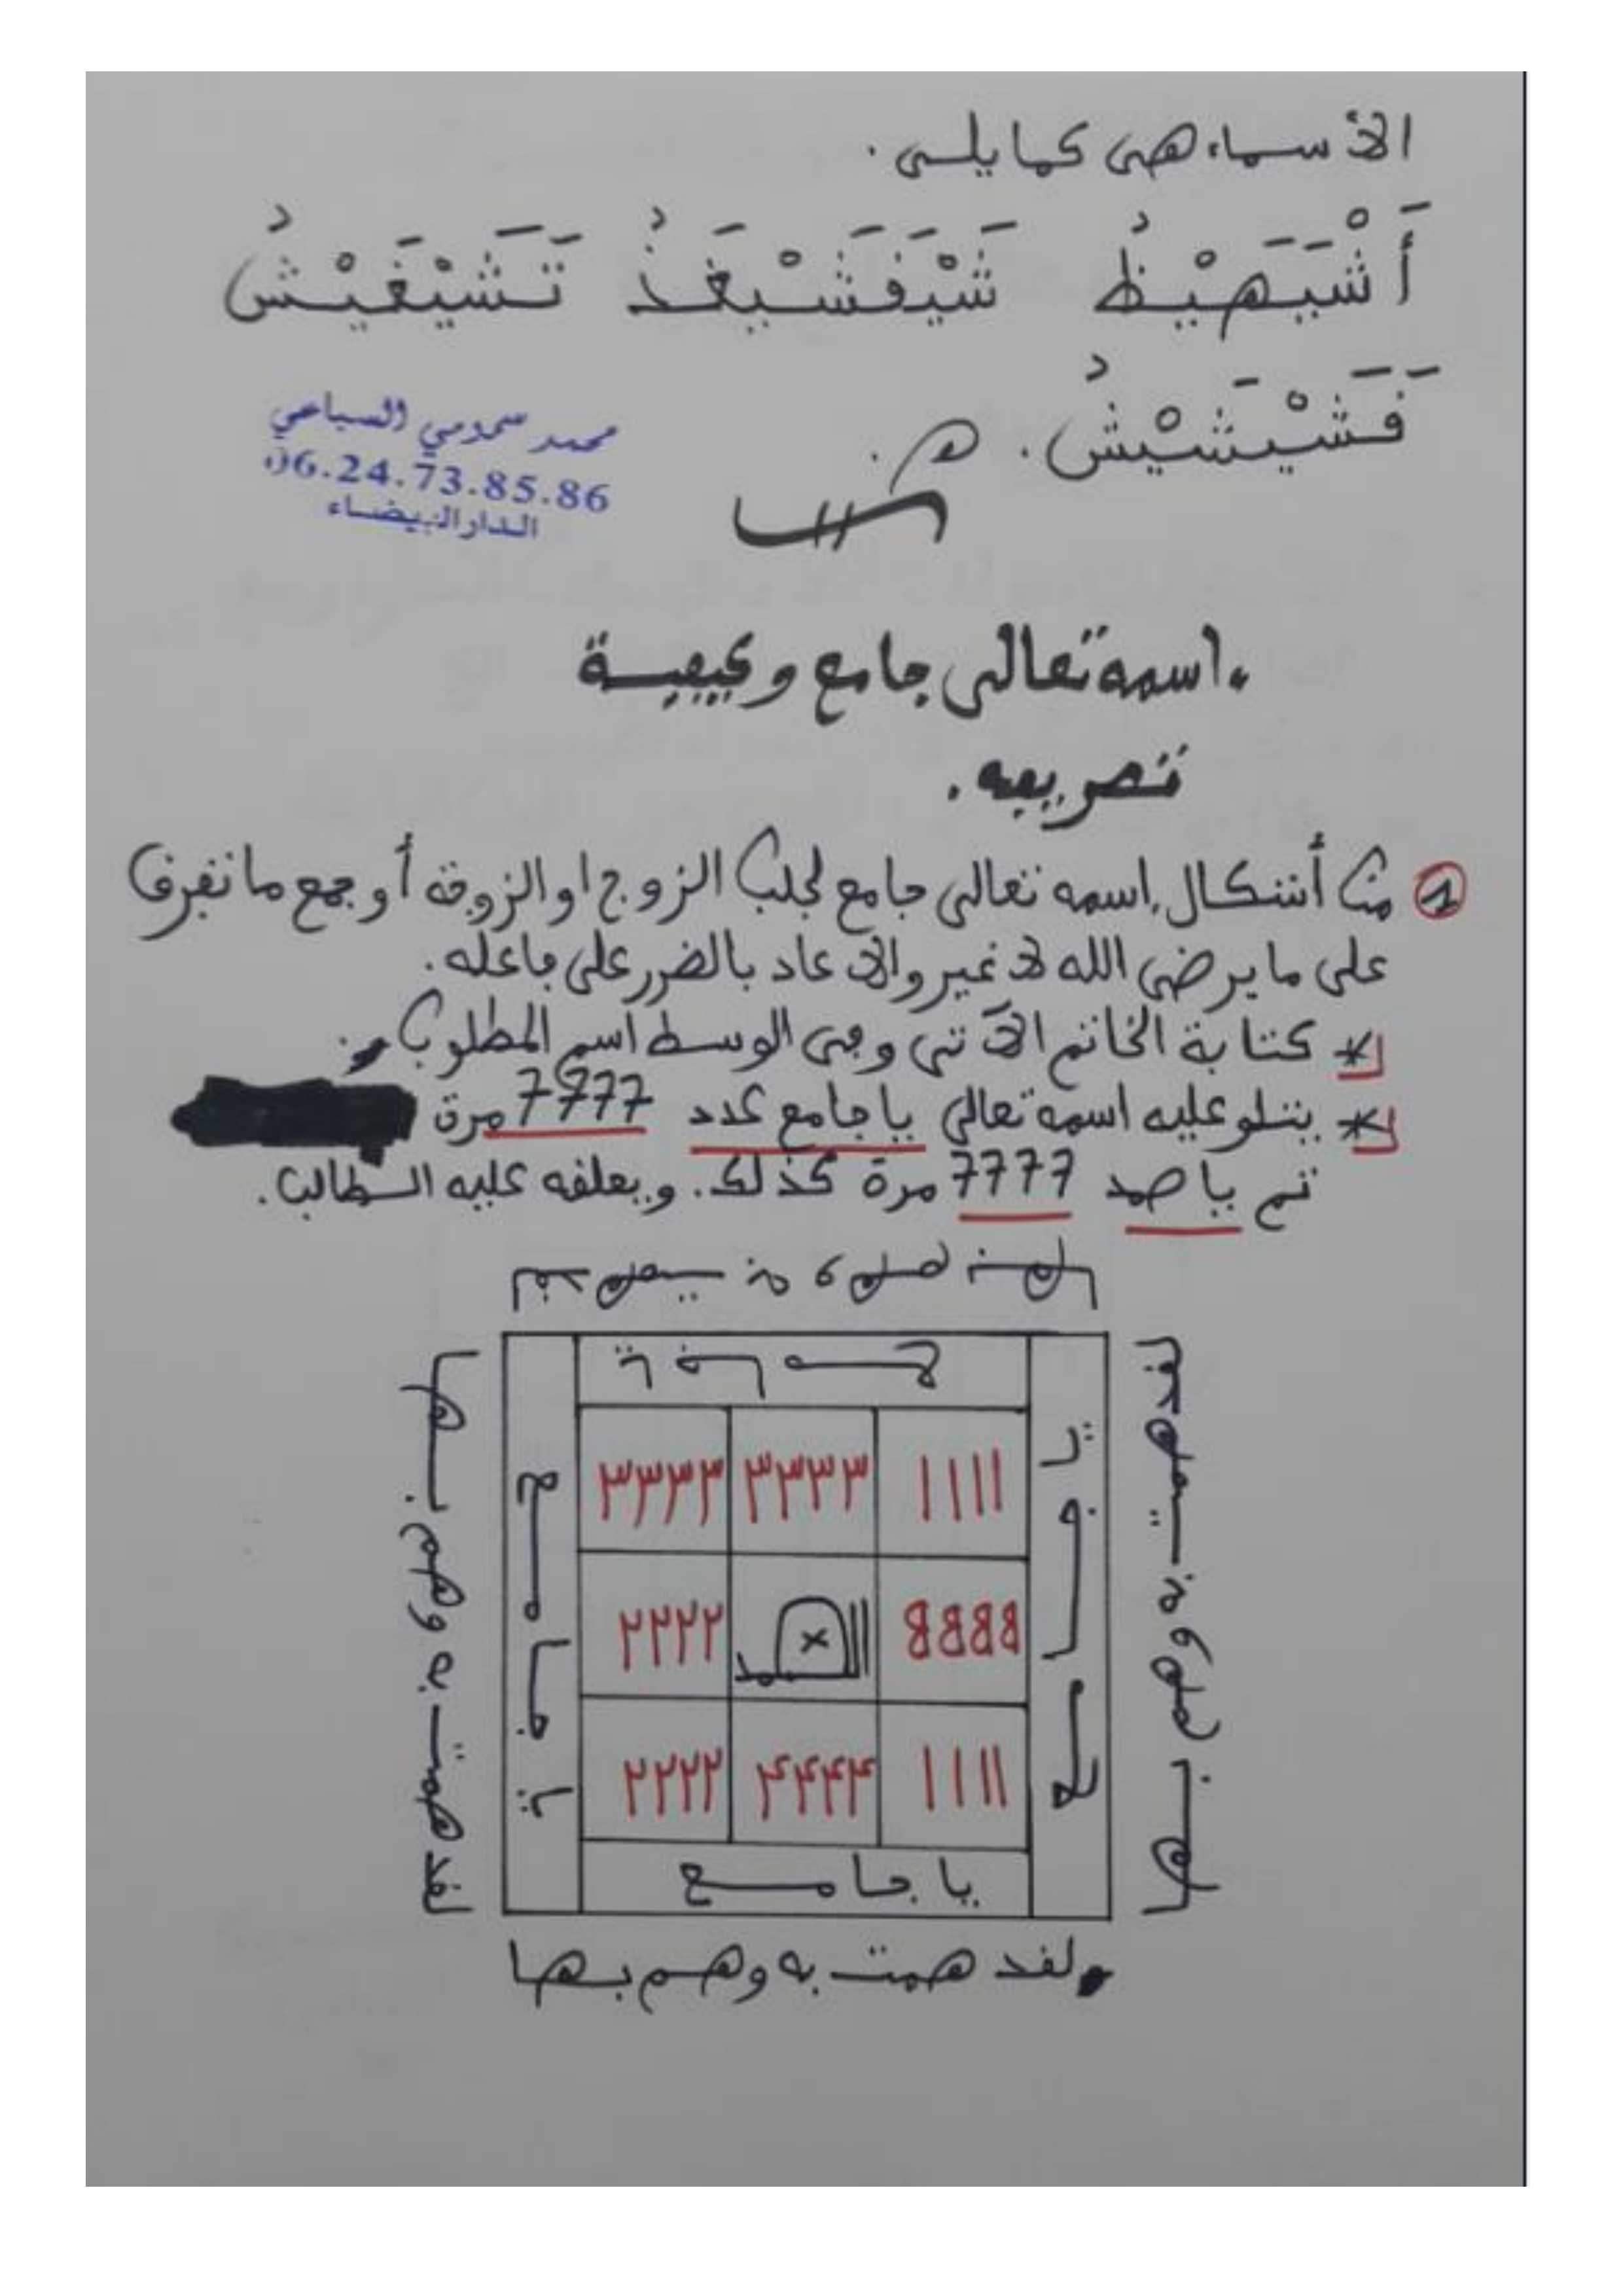 الأسماء هي كما يلي.
أَشْبَهِيْظُ شَيْفَشْيَغَذُ تَشَيْغَيْشُ
فَشْيَشْيَشُ. هـ.
محمد سمومي السباعي
06.24.73.85.86
الدار البيضاء
اسمه تعالى جامع وكيفية
تصريفه.
1 من أشكال اسمه تعالى جامع لجلب الزوج او الزوجة أو جمع ما تفرق
على ما يرضي الله لا غير والا عاد بالضرر على فاعله.
* كتابة الخاتم الآتي وفي الوسط اسم المطلوب
* يتلو عليه اسمه تعالى يا جامع عدد 7777 مرة
تم يا صمد 7777 مرة كذلك. ويعلقه عليه الطالب.
٣٣٣٣ ٣٣٣٣ ١١١١
٢٢٢٢ x 8888
٢٢٢٢ ۴۴۴۴ ١١١١
يا جامع
يا جامع
لقد همت به وهم بها
لقد همت به وهم بها